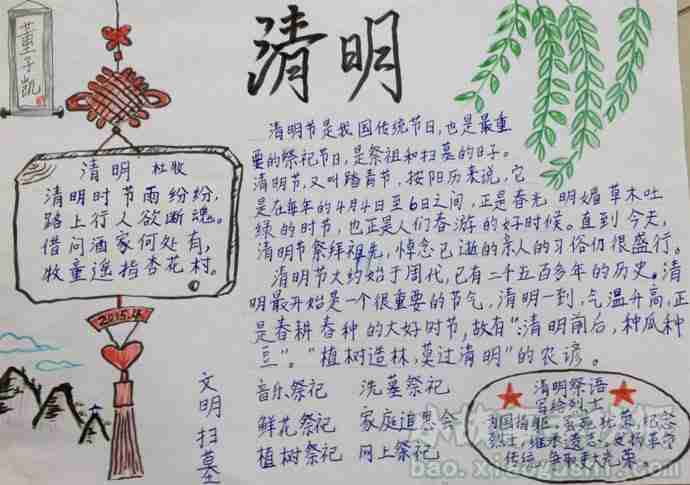 董子凯
清明
清明 杜牧
清明时节雨纷纷,
路上行人欲断魂。
借问酒家何处有,
牧童遥指杏花村。
2015.4
清明节是我国传统节日,也是最重
要的祭祀节日,是祭祖和扫墓的日子。
清明节,又叫踏青节,按阳历来说,它
是在每年的4月4日至6日之间,正是春光 明媚草木吐
绿的时节,也正是人们春游的好时候。直到今天,
清明节祭拜祖先,悼念已逝的亲人的习俗仍很盛行。
清明节大约始于周代,已有二千五百多年的历史。清
明最开始是一个很重要的节气,清明一到,气温升高,正
是春耕春种的大好时节,故有“清明前后,种瓜种
豆”。“植树造林,莫过清明”的农谚。
文明扫墓
音乐祭祀 洗墓祭祀
鲜花祭祀 家庭追思会
植树祭祀 网上祭祀
清明祭语
写给烈士
为国捐躯
纪念
烈士,继承遗志,发扬革命
传统,争取更大光荣。
bao.